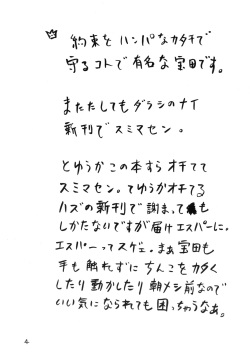 約束を ハンパなカタチで
守るコトで有名な宝田です。
またたしてもダラシのナイ
新刊でスミマセン。
とゆうかこの本すら オチてて
スミマセン。てゆうかオチてる
ハズの新刊で謝まっても
しかたないですが届けエスパーに。
エスパーってスゲェ。まぁ宝田も
手も触れずにちんこをカタく
したり動かしたり朝メシ前なので
いい気になられても困っちゃうなぁ。
4